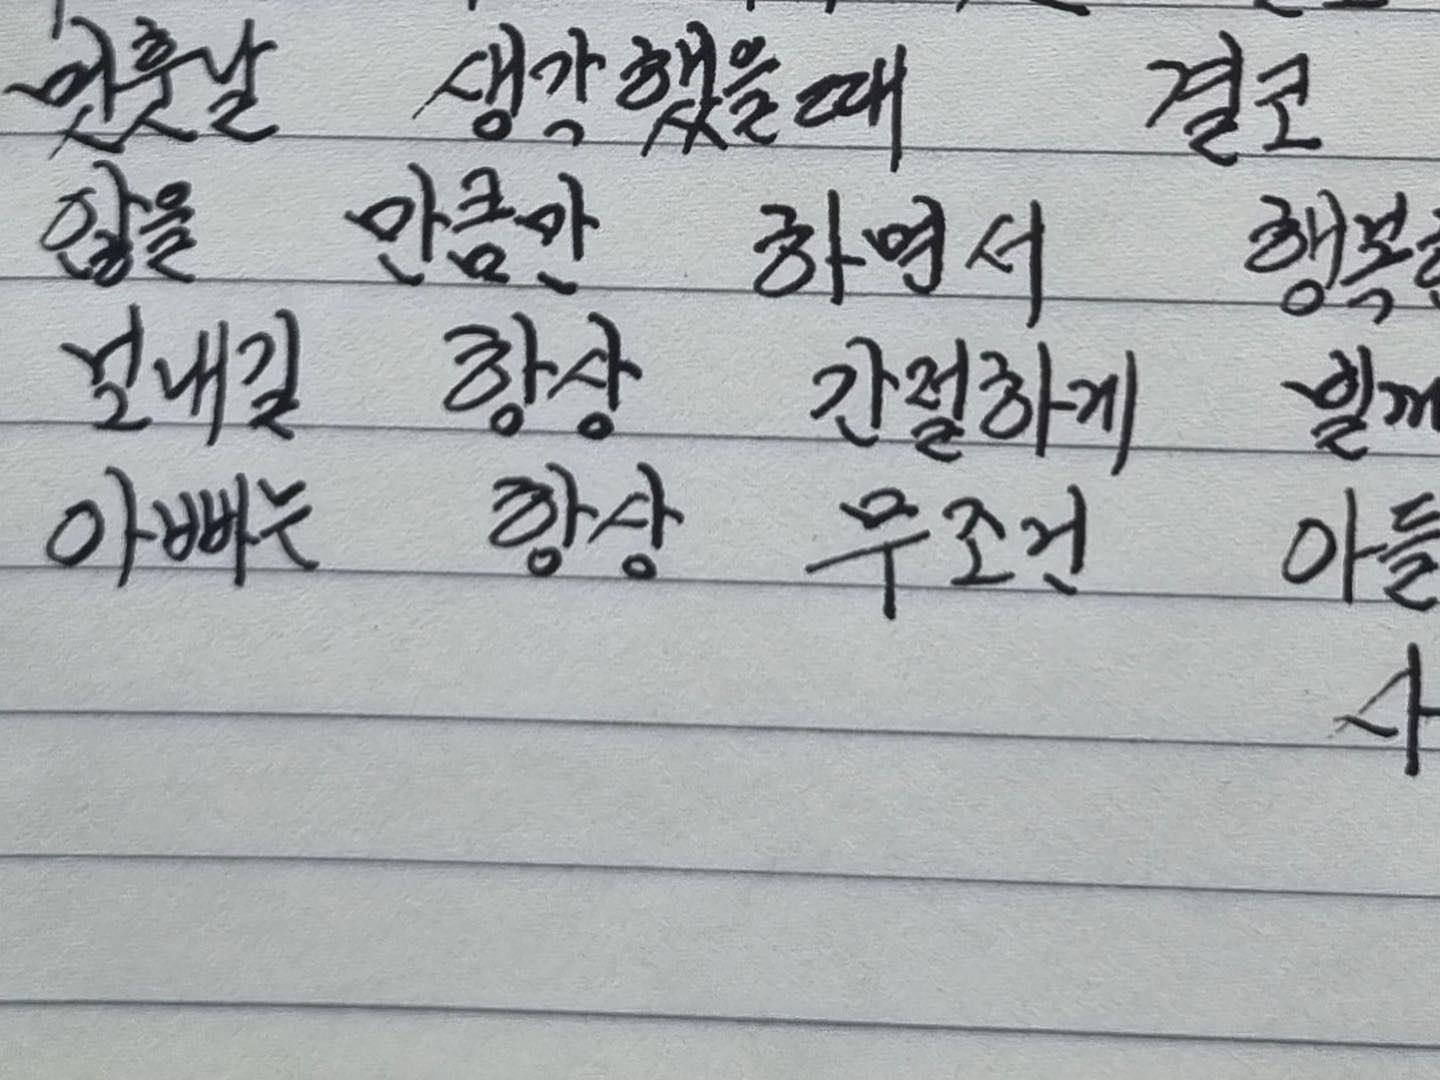 먼훗날 생각했을때 결코
않을 만큼만 하면서 행복한
보내길 항상 간절하게 힐께
아빠는 항상 무조건 아들
사